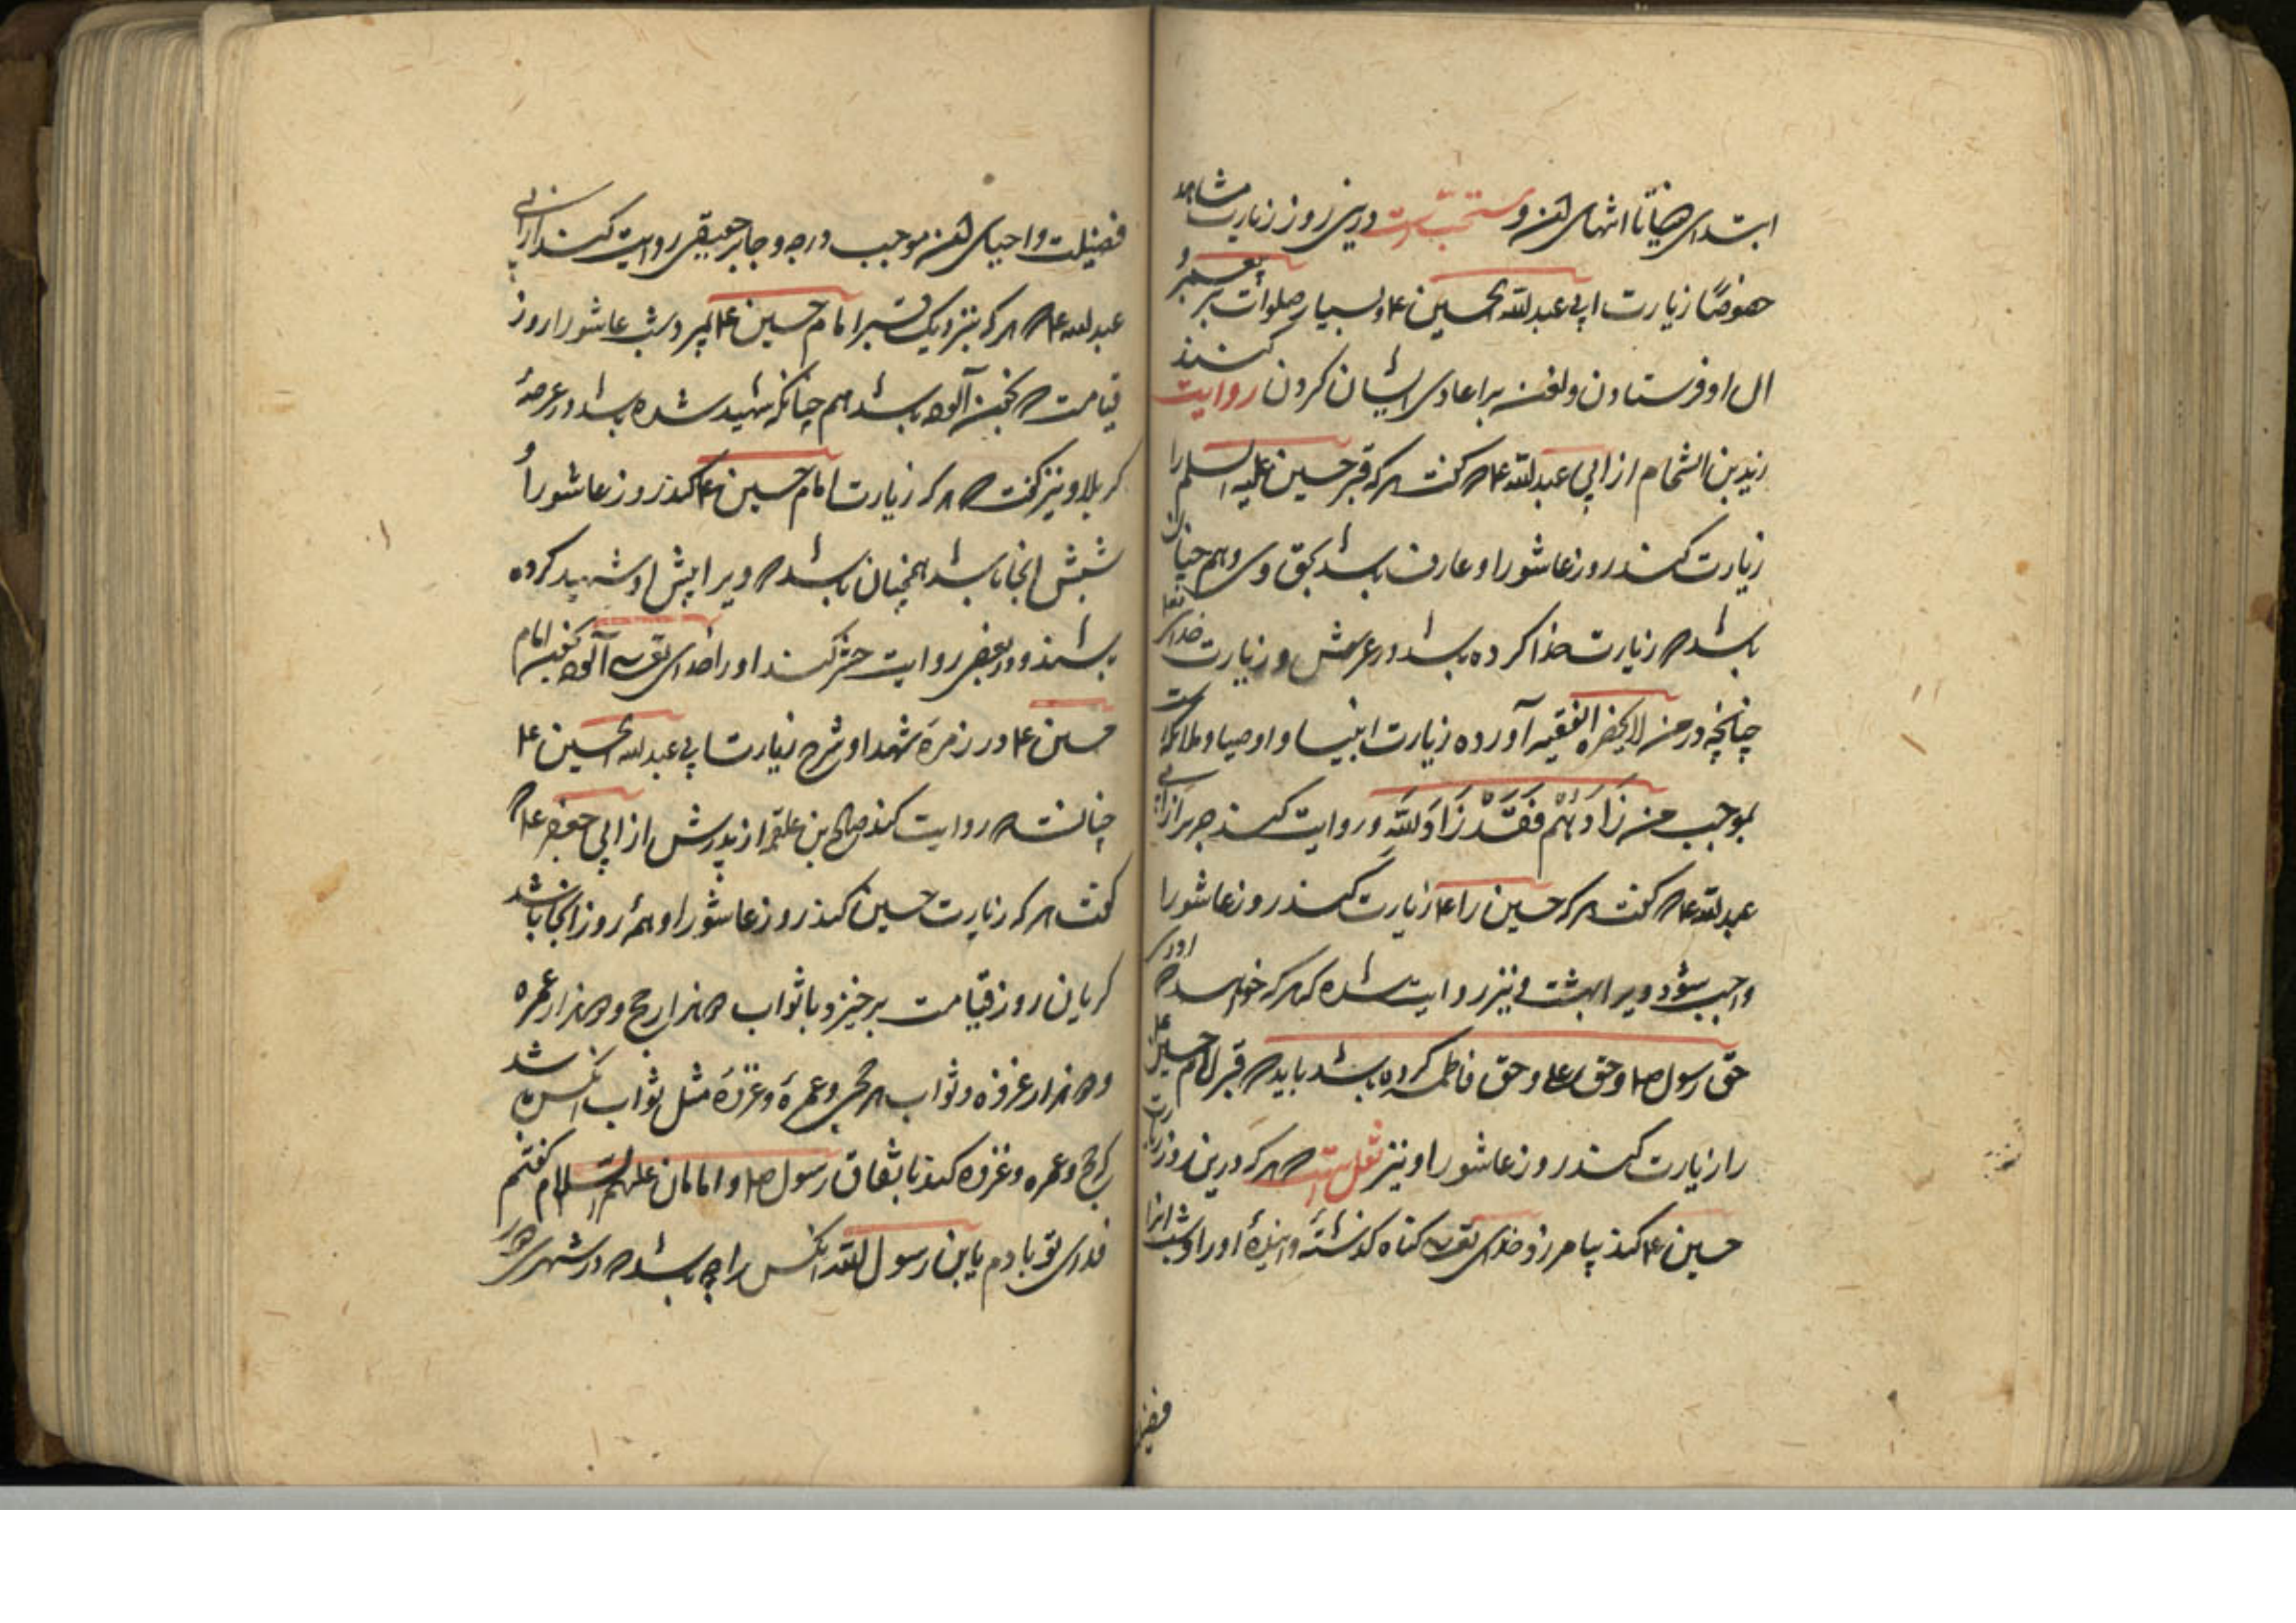 ابتدای حیاتا انتهای آن و مستحبّ است درین روز زیارت مشاهد
خصوصًا زیارت ابی عبدالله الحسین ع و بسیار صلوات بر پیغمبر و
ال او فرستادن و لعنه بر اعادی ایشان کردن روایت کنند
زید بن الشحام از ابی عبدالله ع که گفت هر که قبر حسین علیه السلم را
زیارت کند روز عاشورا و عارف باشد بحق وی و هم چنان
باشد که زیارت خدا کرده باشد در عرش و زیارت خدای تعا
چنانچه در من لایحضره الفقیه آورده زیارت انبیا و اوصیا و ملائکه است
بموجب من زارهم فقد زار الله و روایت کند حریز از ابی
عبدالله ع که گفت هر که حسین را ع زیارت کند روز عاشورا
واجب شود ویرا بهشت و نیز روایت شده که هر که خواهد که ادای
حق رسول ص و حق علی و حق فاطمه کرده باشد باید که قبر امام حسین ع
را زیارت کند روز عاشورا و نیز نقل است که هر که درین روز زیارت
حسین ع کند بیامرزد خدای تع گناه گذشته و آینده او را و شب آنرا
فضیلت و احیای آن موجب درجه و جابر جعفی روایت کند از ابی
عبدالله ع که هر که بنزدیک قبر امام حسین ع بسر برد شب عاشورا روز
قیامت بخون آلوده باشد هم چنانکه شهید شده باشد در عرصهٔ
کربلا و نیز گفت که هر که زیارت امام حسین ع کند روز عاشورا و
شبش آنجا باشد همچنان باشد که ویرا پیش او شهید کرده
باشند و در بعضی روایت حشر کند او را خدای تع آلوده امام
حسین ع و در زمره شهدا و شرح زیارت ابی عبدالله الحسین ع
چنانست که روایت کند صالح بن علقمه از پدرش از ابی جعفر ع که
گفت هر که زیارت حسین کند روز عاشورا و همه روز آنجا باشد
گریان روز قیامت برخیزد با ثواب هزار حج و هزار عمره
و هزار غزوه و ثواب هر حجی و عمرهٔ و غزوهٔ مثل ثواب آنکس باشد
که حج و عمره و غزوه کند باتفاق رسول ص و امامان علیهم السلام گفتم
فدای تو بادم یا ابن رسول الله آنکس را چه باشد که در شهری دور
فضیلت